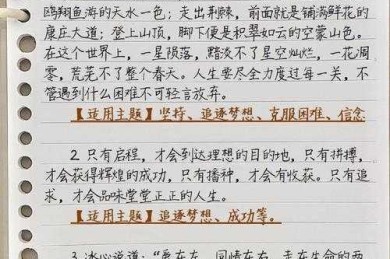 鸥翔鱼游的天水一色；走出荆棘，前面就是铺满鲜花的
康庄大道；登上山顶，脚下便是积翠如云的空蒙山色。
在这个世界上，一星陨落，黯淡不了星空灿烂，一花凋
零，荒芜不了整个春天。人生要尽全力度过每一关，不
管遇到什么困难不可轻言放弃。
【适用主题】坚持、追逐梦想、克服困难、信念
2.只有启程，才会到达理想的目的地，只有拼搏，
才会获得辉煌的成功，只有播种，才会有收获。只有追
求，才会品味堂堂正正的人生。
【适用主题】追逐梦想、成功等。
3.冰心说道："爱在左，同情在右，走在生命的两